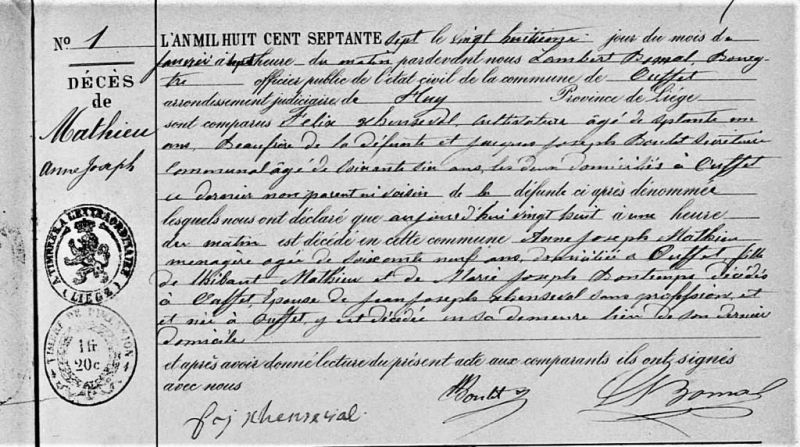 No 1
DÉCÈS
de
Mathieu
Anne Joseph
A TIMBRER A L'EXTRAORDINAIRE
(LIÉGE)
1 fr
20 c
L'AN MIL HUIT CENT SEPTANTE sept le vingt huitième jour du mois de
janvier à sept heure du matin pardevant nous Lambert Bomal, Bourg-
tre officier public de l'état civil de la commune de Ouffet
arrondissement judiciaire de Huy Province de Liége
sont comparus Felix xhenseval cultivateur âgé de septante un
ans, Beaufrère de la défunte et jacques joseph Boulet Secrétaire
communal âgé de soixante six ans, les deux domiciliés à Ouffet
ce dernier non parent ni voisin de la défunte ci après dénommée
lesquels nous ont déclaré que aujourd'hui vingt huit à une heure
du matin est décédé en cette commune Anne Joseph Mathieu
menagère agée de soixante neuf ans, domiciliée à Ouffet, fille
de Thibaut Mathieu et de Marie Joseph Bontemps décédés
à Ouffet, Epouse de jean joseph xhenseval sans profession, et
et née à Ouffet, y est décédée en sa demeure lieu de son dernier
domicile
et après avoir donné lecture du présent acte aux comparants ils ont signés
avec nous
f x j xhenseval
Boulet
L Bomal